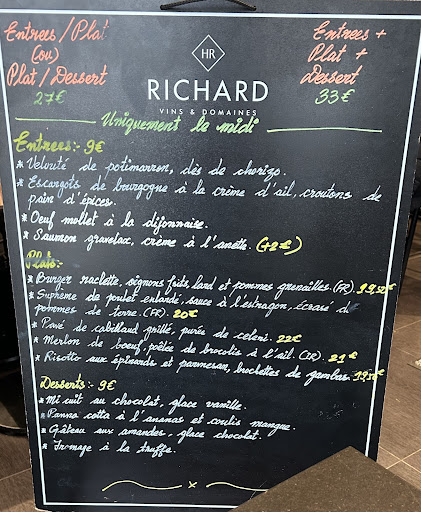 Entrees / Plat
(ou)
Plat / Dessert
27€
HR
RICHARD
VINS & DOMAINES
Entrees +
Plat +
Dessert
33€
Uniquement le midi
Entrees :- 9€
* Velouté de potimarron, dès de chorizo.
* Escargots de bourgogne à la crème d'ail, croutons de
pain d'épices.
* Oeuf mollet à la dijonnaise.
* Saumon gravelax, crème à l'aneth. (+2€)
Plats :-
* Burger raclette, oignons frits, lard et pommes grenailles. (FR). 19,50€
* Suprème de poulet entandé, sauce à l'estragon, écrasé de
pommes de terre. (FR). 20€
* Pavé de cabillaud grillé, purée de celeri. 22€
* Merlon de boeuf, poêlée de brocolis à l'ail. (IR). 21€
* Risotto aux épinards et parmesan, brochettes de gambas. 19,50€
Desserts :- 9€
* Mi cuit au chocolat, glace vanille.
* Panna cotta à l'ananas et coulis mangue.
* Gâteau aux amandes, glace chocolat.
* Fromage à la truffe.